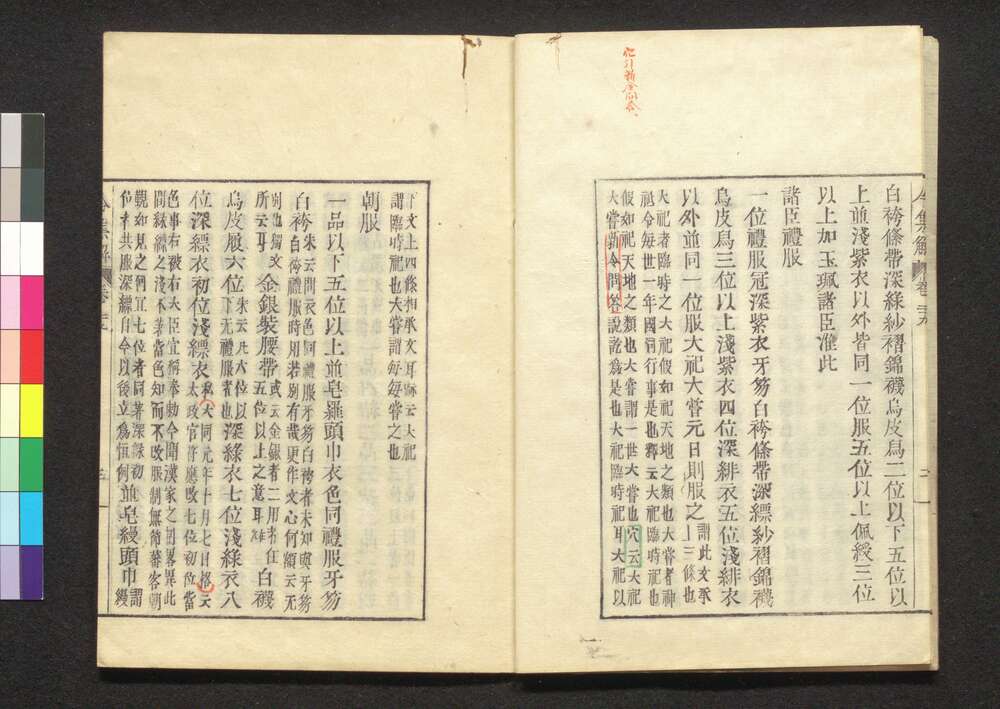 白袴條帶深綠紗褶錦襪烏皮舄二位以下五位以
上並淺紫衣以外皆同一位服五位以上佩綬三位
以上加玉珮諸臣准此
諸臣禮服
一位禮服冠深紫衣牙笏白袴條帶深縹紗褶錦襪
烏皮舄三位以上淺紫衣四位深緋衣五位淺緋衣
以外並同一位服大祀大嘗元日則服之
謂此文承上三條也
大祀者臨時之大祀假如祀天地之類也大嘗者神
祇令每世一年國司行事是也釋云大祀臨時祀也
假如祀天地之類也大嘗謂一世大嘗也穴云大祀
大嘗新令問答說訖爲是也大祀臨時祀耳大祀以
下文上四條相承文耳
云大祀
謂臨時祀也大嘗謂每每嘗之也
朝服
一品以下五位以上並皂羅頭巾衣色同禮服牙笏
白袴
朱云問衣色同禮服牙笏白袴者未知與牙笏
白袴禮服時用若別有哉更作文心何額云无
別也
金銀裝腰帶
或云金銀者二用者任
所云耳
五位以上之意耳
白襪
烏皮履六位
朱云凡六位以
下无禮服者也
深綠衣七位淺綠衣八
位深縹衣初位淺縹衣
大同元年十月七日格云
太政官符應改七位初位當
色事右被右大臣宣稱奉勅今聞漢家之
此
間綠縹之淺不著當色知而不改服制無
蕃客朝
觀如見之何宜七位者同著深綠初
位
共服深縹自今以後立爲恒何
並皂縵頭巾
謂
縵
令集解
卷